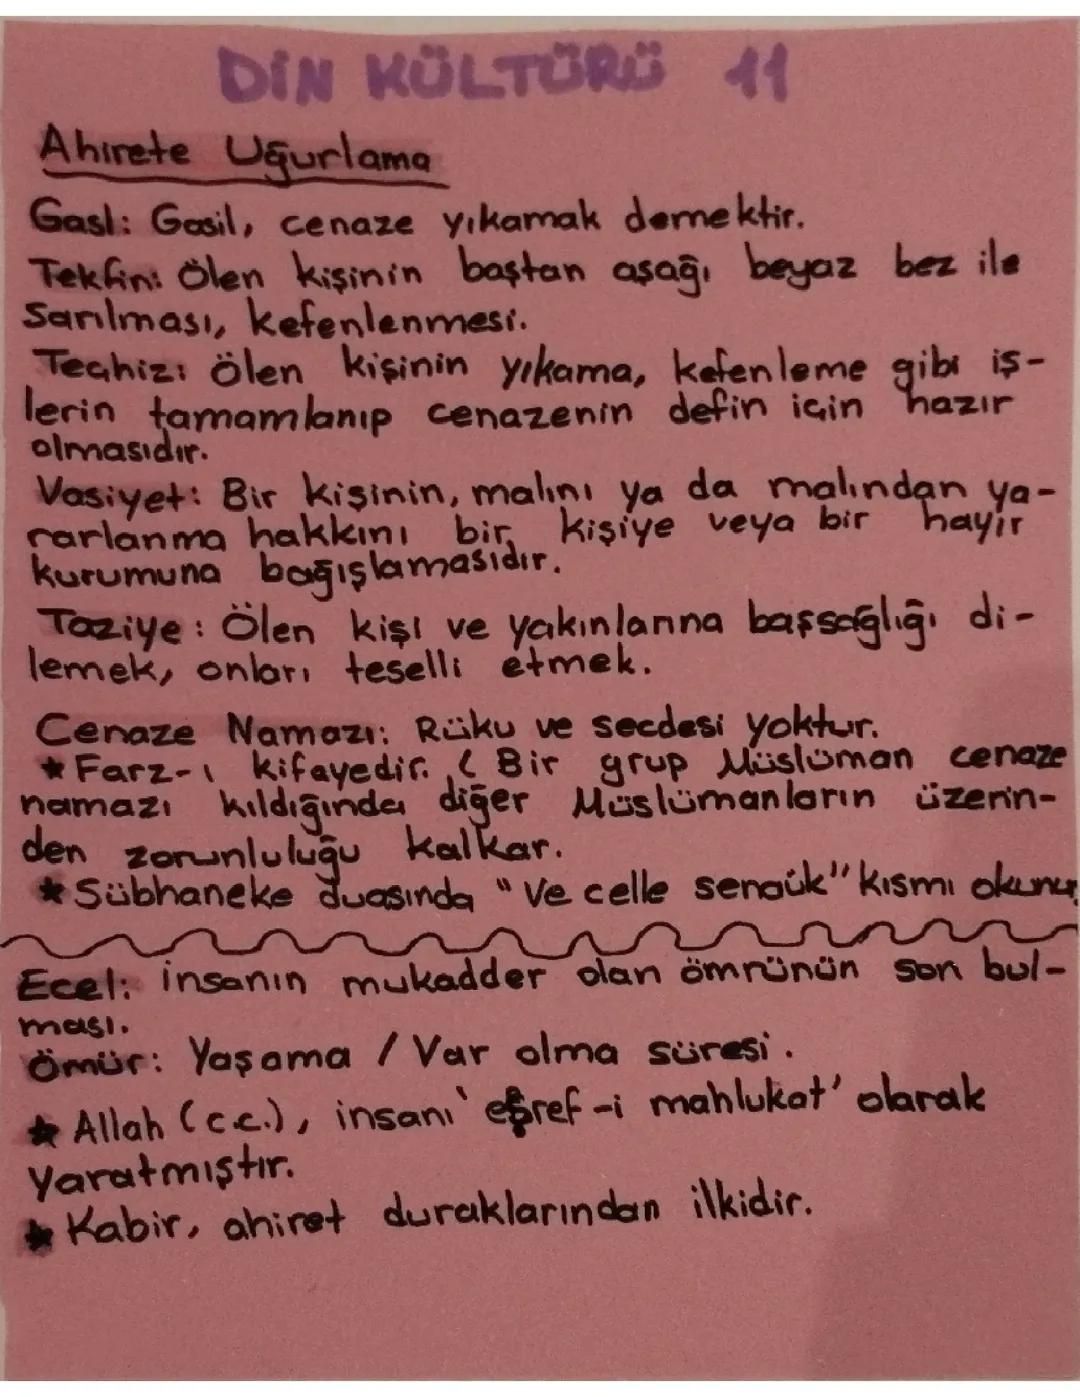 DİN KÜLTÜRÜ 11
Ahirete Uğurlama
Gasl: Gasil, cenaze yıkamak demektir.
Tekfin: Ölen kişinin baştan aşağı beyaz bez ile
sarılması, kefenlenmesi.
Teçhiz: Ölen kişinin yıkama, kefenleme gibi iş-
lerin tamamlanıp cenazenin defin için hazır
olmasıdır.
Vasiyet: Bir kişinin, malını ya da malından ya-
rarlanma hakkını bir kişiye veya bir hayır
kurumuna bağışlamasıdır.
Taziye: Ölen kişi ve yakınlarına başsağlığı di-
lemek, onları teselli etmek.
Cenaze Namazı: Rüku ve secdesi yoktur.
★ Farz-ı kifayedir. ( Bir grup Müslüman cenaze
namazı kıldığında diğer Müslümanların üzerin-
den zorunluluğu kalkar.
★ Sübhaneke duasında "Ve celle senaük" kısmı okunur
Ecel: İnsanın mukadder olan ömrünün son bul-
ması.
Ömür: Yaşama / Var olma süresi.
★ Allah (c.c.), insanı 'eşref-i mahlukat' olarak
yaratmıştır.
★ Kabir, ahiret duraklarından ilkidir.